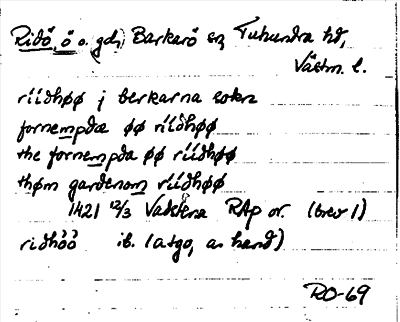 Ridö, ö o. gd, i Barkarö sn, Tuhundra hd,
Västm. l.
riidhøø j berkarna sokn
fornempdæ øø riidhøø
the fornempda øø riidhøø
thøm gardenom riidhøø
1421 12/3 RAp or. (brev 1)
ridhöö ib. (atgo, as hand)
RO-69